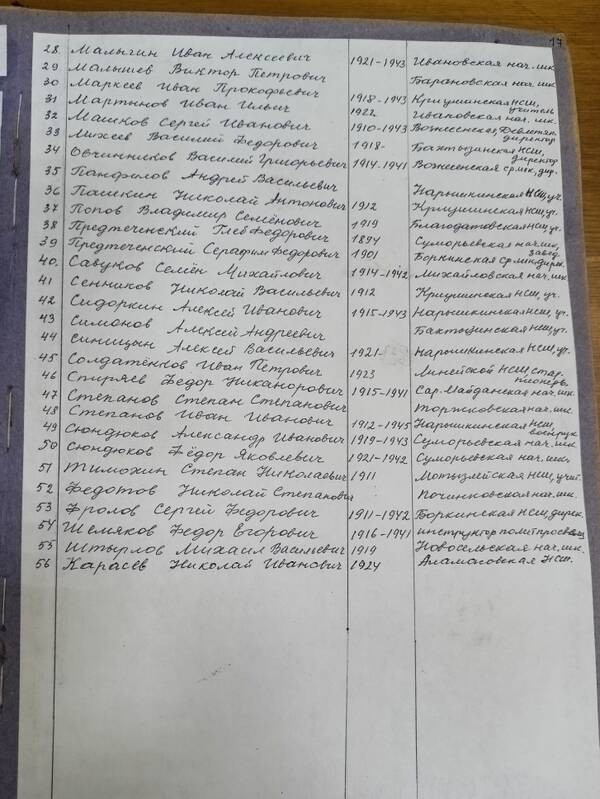 17
28. Малыгин Иван Алексеевич 1921-1943 Ивановская нач. шк.
29 Малышев Виктор Петрович Барановская нач. шк.
30 Маркеев Иван Прокофьевич 1918-1943 Кришинская НСШ, учитель
31 Мартынов Иван Ильич 1922 Ивановская нач. шк.
32 Машков Сергей Иванович 1910-1943 Вознесенская директор
33 Михеев Василий Федорович 1918- Бахтызинская НСШ, директор
34 Овчинников Василий Григорьевич 1914-1941 Вознесенская ср. шк, дир.
35 Панфилов Андрей Васильевич
36 Пашкин Николай Антонович 1912 Нарышкинская НСШ, уч.
37 Попов Владимир Семёнович 1919 Кришинская НСШ, уч.
38 Предтеченский Глеб Федорович 1894 Благодатовская НСШ, уч.
39 Предтеченский Серафим Федорович 1901 Суморьевская нач. шк, завед.
40. Савуков Семён Михайлович 1914-1942 Боркинская ср. шк. дирек.
41 Сенников Николай Васильевич 1912 Михайловская нач. шк.
42 Сидоркин Алексей Иванович 1915-1943 Кришинская НСШ, уч.
43 Симонов Алексей Андреевич Нарышкинская НСШ, уч.
44 Синицын Алексей Васильевич 1921- Бахтызинская НСШ, уч.
45 Солдатёнков Иван Петрович 1923 Нарышкинская НСШ, уч.
46 Спиряев Федор Никанорович 1915-1941 Линейской НСШ, стар. пионерв.
47 Степанов Степан Степанович Сар. Майданская нач. шк.
48 Степанов Иван Иванович 1912-1945 Торжковская нач. шк.
49 Сюндюков Александр Иванович 1919-1943 Нарышкинская НСШ, военрук
50 Сюндюков Фёдор Яковлевич 1921-1942 Суморьевская нач. шк.
51 Тимохин Степан Николаевич 1911 Суморьевская нач. шк.
52 Федотов Николай Степанович Мотызлейская НСШ, учит.
53 Фролов Сергей Федорович 1911-1942 Починковская нач. шк.
54 Шемяков Федор Егорович 1916-1941 Боркинская НСШ, дирек.
55 Штырлов Михаил Васильевич 1919 инструктор политпросвет
56 Карасёв Николай Иванович 1924 Новосельская нач. шк.
Аламасовская НСШ.